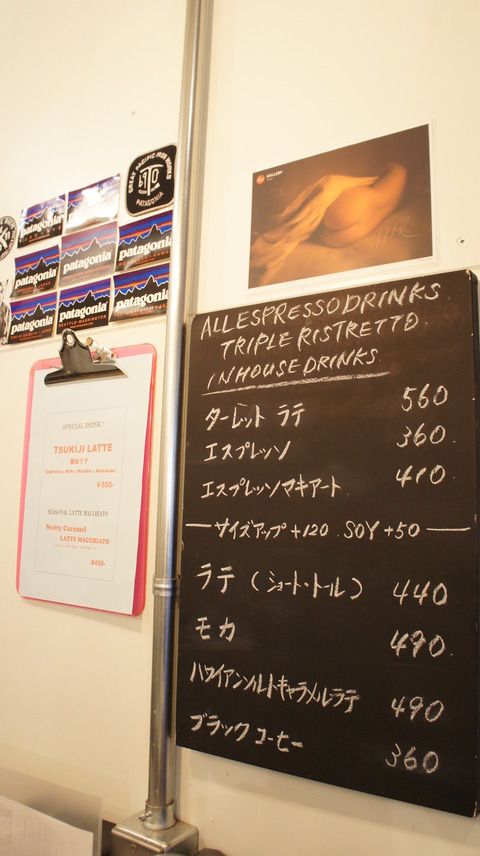 GREAT PACIFIC IRON WORKS
PATAGONIA
patagonia
patagonia
patagonia
patagonia
patagonia
patagonia
patagonia
SEATTLE・WASHINGTON
patagonia
GALLERY
SPECIAL DRINK!
TSUKIJI LATTE
築地ラテ
Espresso + Milk + Matcha + Red bean
¥550-
SEASONAL LATTE MACCHIATO
Nutty Caramel
LATTE MACCHIATO
¥450-
ALL ESPRESSO DRINKS
TRIPLE RISTRETTO
IN HOUSE DRINKS
ターレット ラテ 560
エスプレッソ 360.
エスプレッソマキアート 410
サイズアップ +120 SOY +50
ラテ (ショート・トール) 440
モカ 490.
ハワイアンソルトキャラメルラテ 490
ブラックコーヒー 360